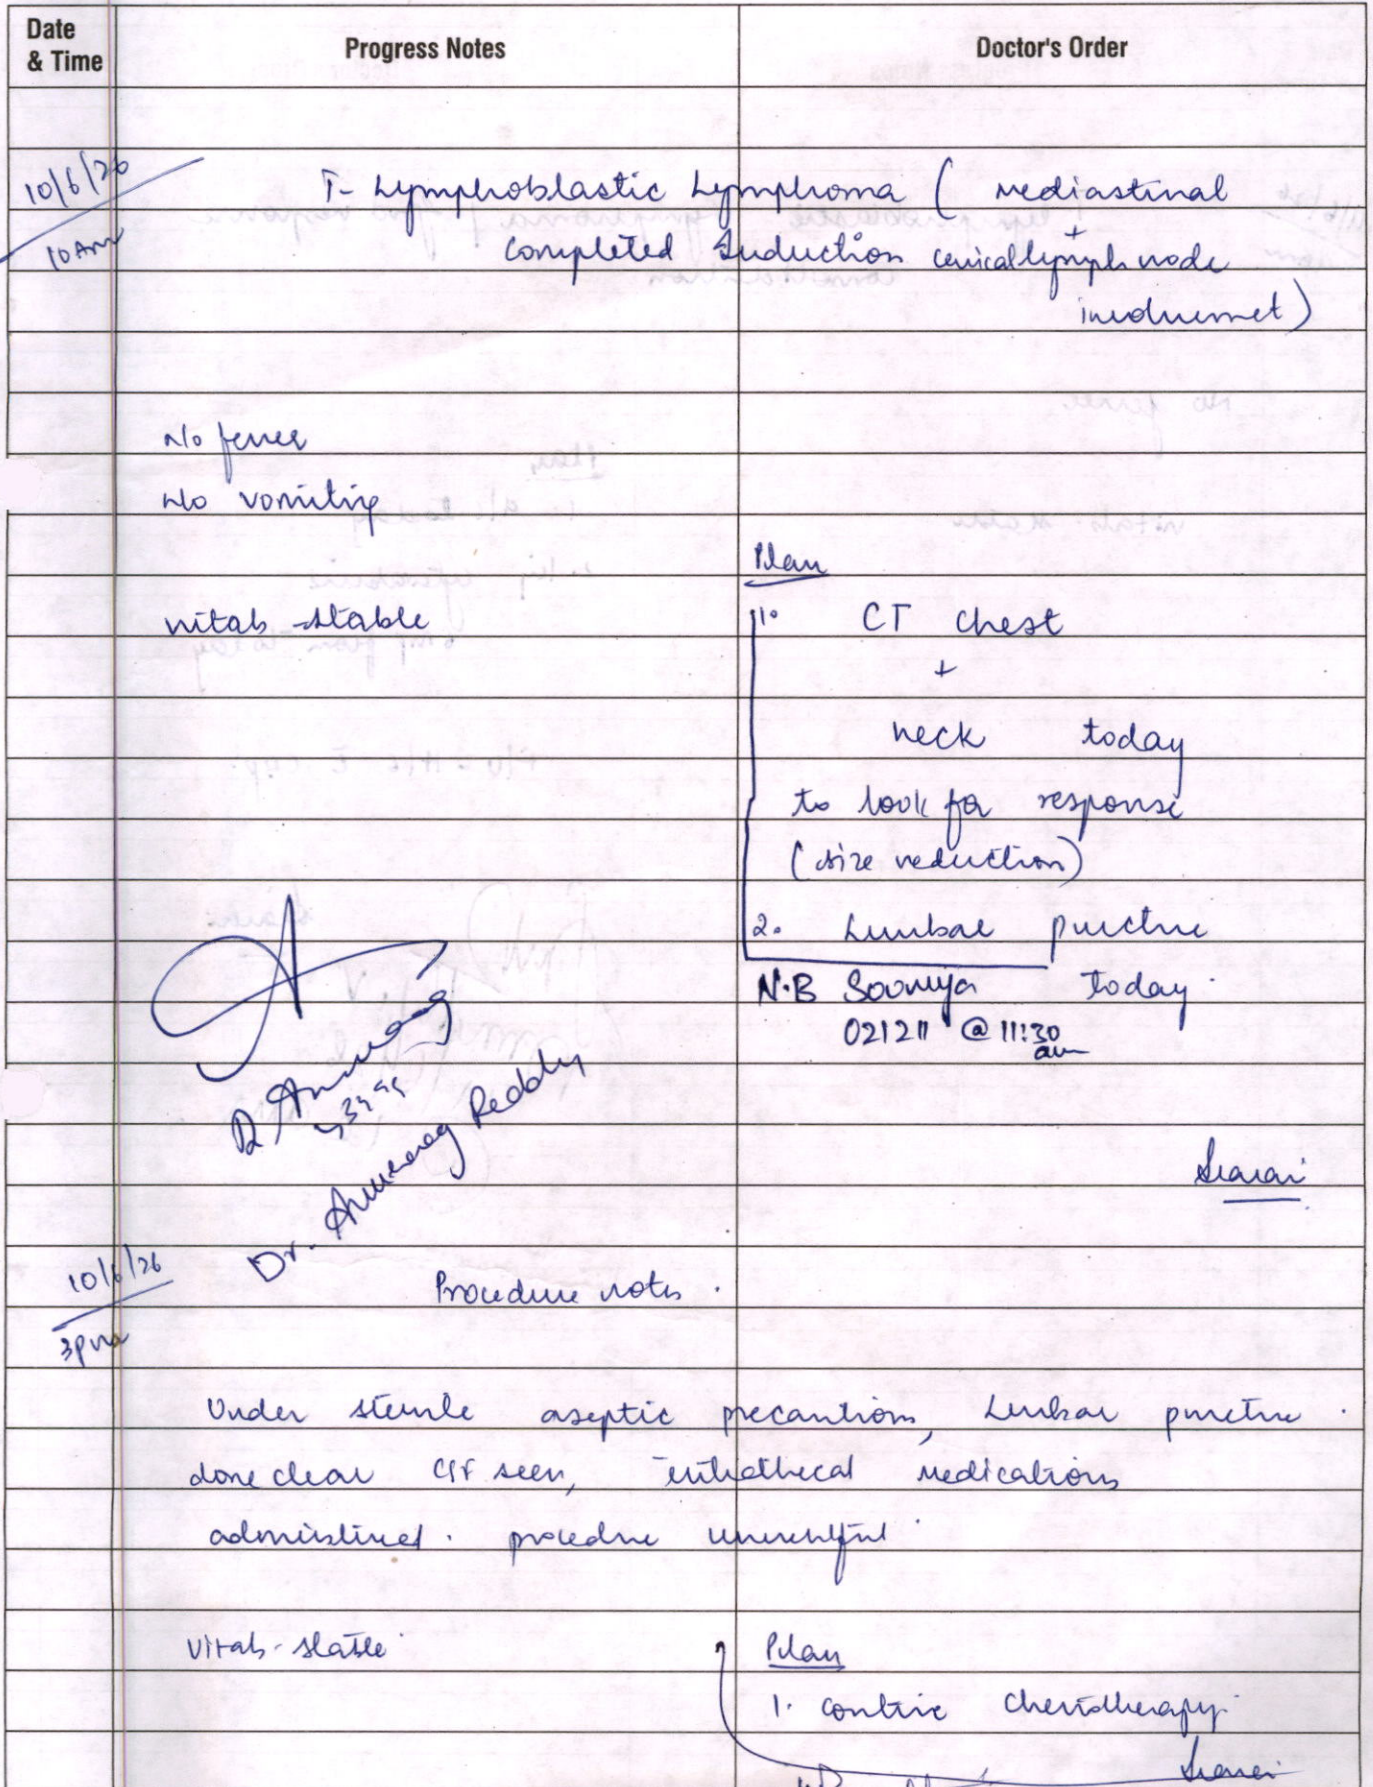 Date
& Time
Progress Notes
Doctor's Order
10/6/26
10 Am
T- Lymphoblastic Lymphoma ( mediastinal
+
completed Induction cervical lymph node
involvemet )
No fever
No vomiting
vitals - stable
Plan
1. CT chest
+
neck today
to look for response
( size reduction )
2. Lumbar puncture
today
N.B Soumya
021211 @ 11:30
am
Dr. Anurag Reddy
10/6/26
3pm
Procedure notes.
Under sterile aseptic precautions, Lumbar puncture
done clear CSF seen, intrathecal medications
administired. procedure uneventful
vitals - stable
Plan
1. contine chemotherapy.